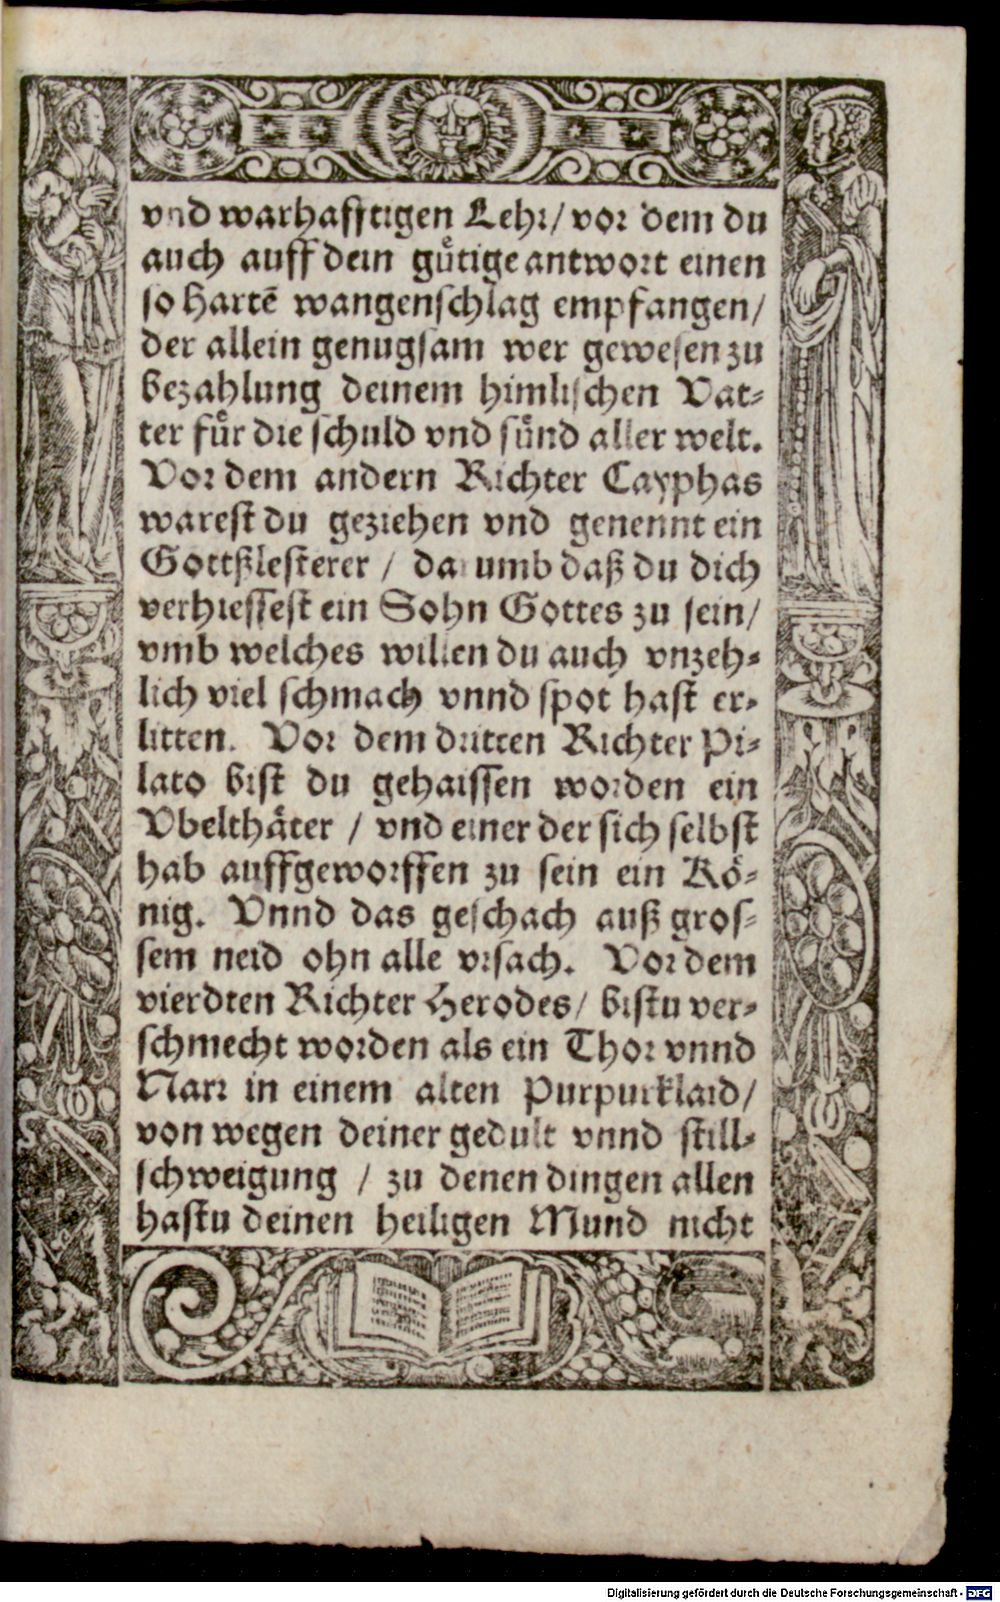 vnd warhafftigen Lehr/ vor dem du
auch auff dein gůtige antwort einen
so hartē wangenschlag empfangen/
der allein genugsam wer gewesen zu
bezahlung deinem himlischen Vat-
ter für die schuld vnd sünd aller welt.
Vor dem andern Richter Cayphas
warest du geziehen vnd genennt ein
Gottßlesterer / darumb daß du dich
verhiessest ein Sohn Gottes zu sein/
vmb welches willen du auch vnzeh-
lich viel schmach vnnd spot hast er-
litten. Vor dem dritten Richter Pi-
lato bist du gehaissen worden ein
Vbelthäter / vnd einer der sich selbst
hab auffgeworffen zu sein ein Kö-
nig. Vnnd das geschach auß gros-
sem neid ohn alle vrsach. Vor dem
vierdten Richter Herodes/ bistu ver-
schmecht worden als ein Thor vnnd
Narr in einem alten Purpurklaid/
von wegen deiner gedult vnnd still-
schweigung / zu denen dingen allen
hastu deinen heiligen Mund nicht
Digitalisierung gefördert durch die Deutsche Forschungsgemeinschaft - DFG